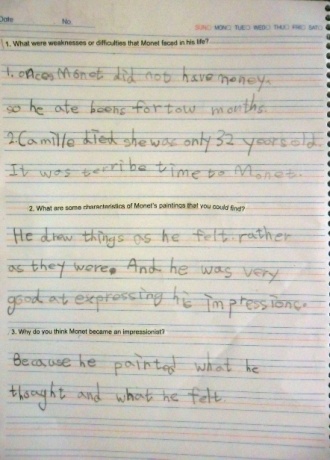 Date No
SUN MON TUE WED THU FRI SAT
1. What were weaknesses or difficulties that Monet faced in his life?
1. onces Monet did not have money.
so he ate beens for tow months.
2. Camille died she was only 32 years old.
It was terribe time to Monet.
2. What are some characteristics of Monet's paintings that you could find?
He drow things as he felt rather
as they were. And he was very
good at expressing his impressions.
3. Why do you think Monet became an impressionist?
Because he painted what he
thought and what he felt.